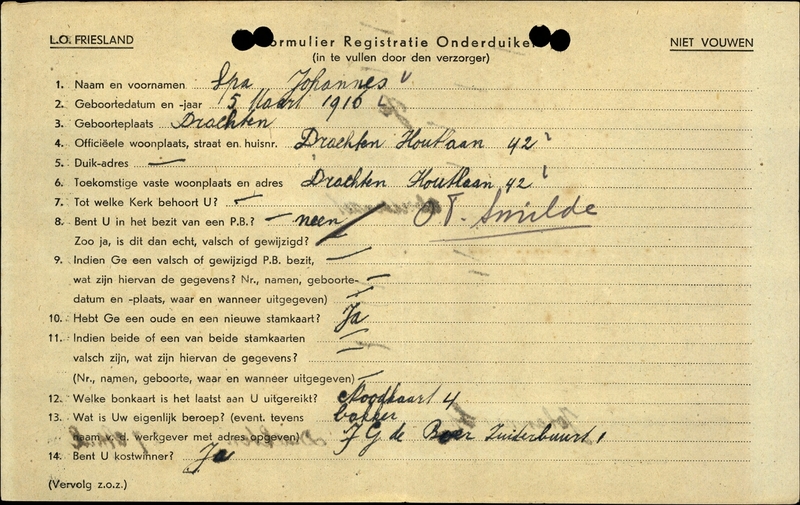 L.O. FRIESLAND
Formulier Registratie Onderduiker
NIET VOUWEN
(in te vullen door den verzorger)
1. Naam en voornamen Spa Johannes
2. Geboortedatum en -jaar 5 Maart 1910
3. Geboorteplaats Drachten
4. Officiëele woonplaats, straat en huisnr. Drachten Houtlaan 42
5. Duik-adres —
6. Toekomstige vaste woonplaats en adres Drachten Houtlaan 42
7. Tot welke Kerk behoort U? —
8. Bent U in het bezit van een P.B.? — neen OT. Smilde
Zoo ja, is dit dan echt, valsch of gewijzigd?
9. Indien Ge een valsch of gewijzigd P.B. bezit, —
wat zijn hiervan de gegevens? Nr., namen, geboorte- —
datum en -plaats, waar en wanneer uitgegeven) —
10. Hebt Ge een oude en een nieuwe stamkaart? Ja
11. Indien beide of een van beide stamkaarten —
valsch zijn, wat zijn hiervan de gegevens? —
(Nr., namen, geboorte, waar en wanneer uitgegeven) —
12. Welke bonkaart is het laatst aan U uitgereikt? Noodkaart 4
13. Wat is Uw eigenlijk beroep? (event. tevens bakker
naam v. d. werkgever met adres opgeven) J G de Boer Zuiderbuurt
14. Bent U kostwinner? Ja
(Vervolg z.o.z.)